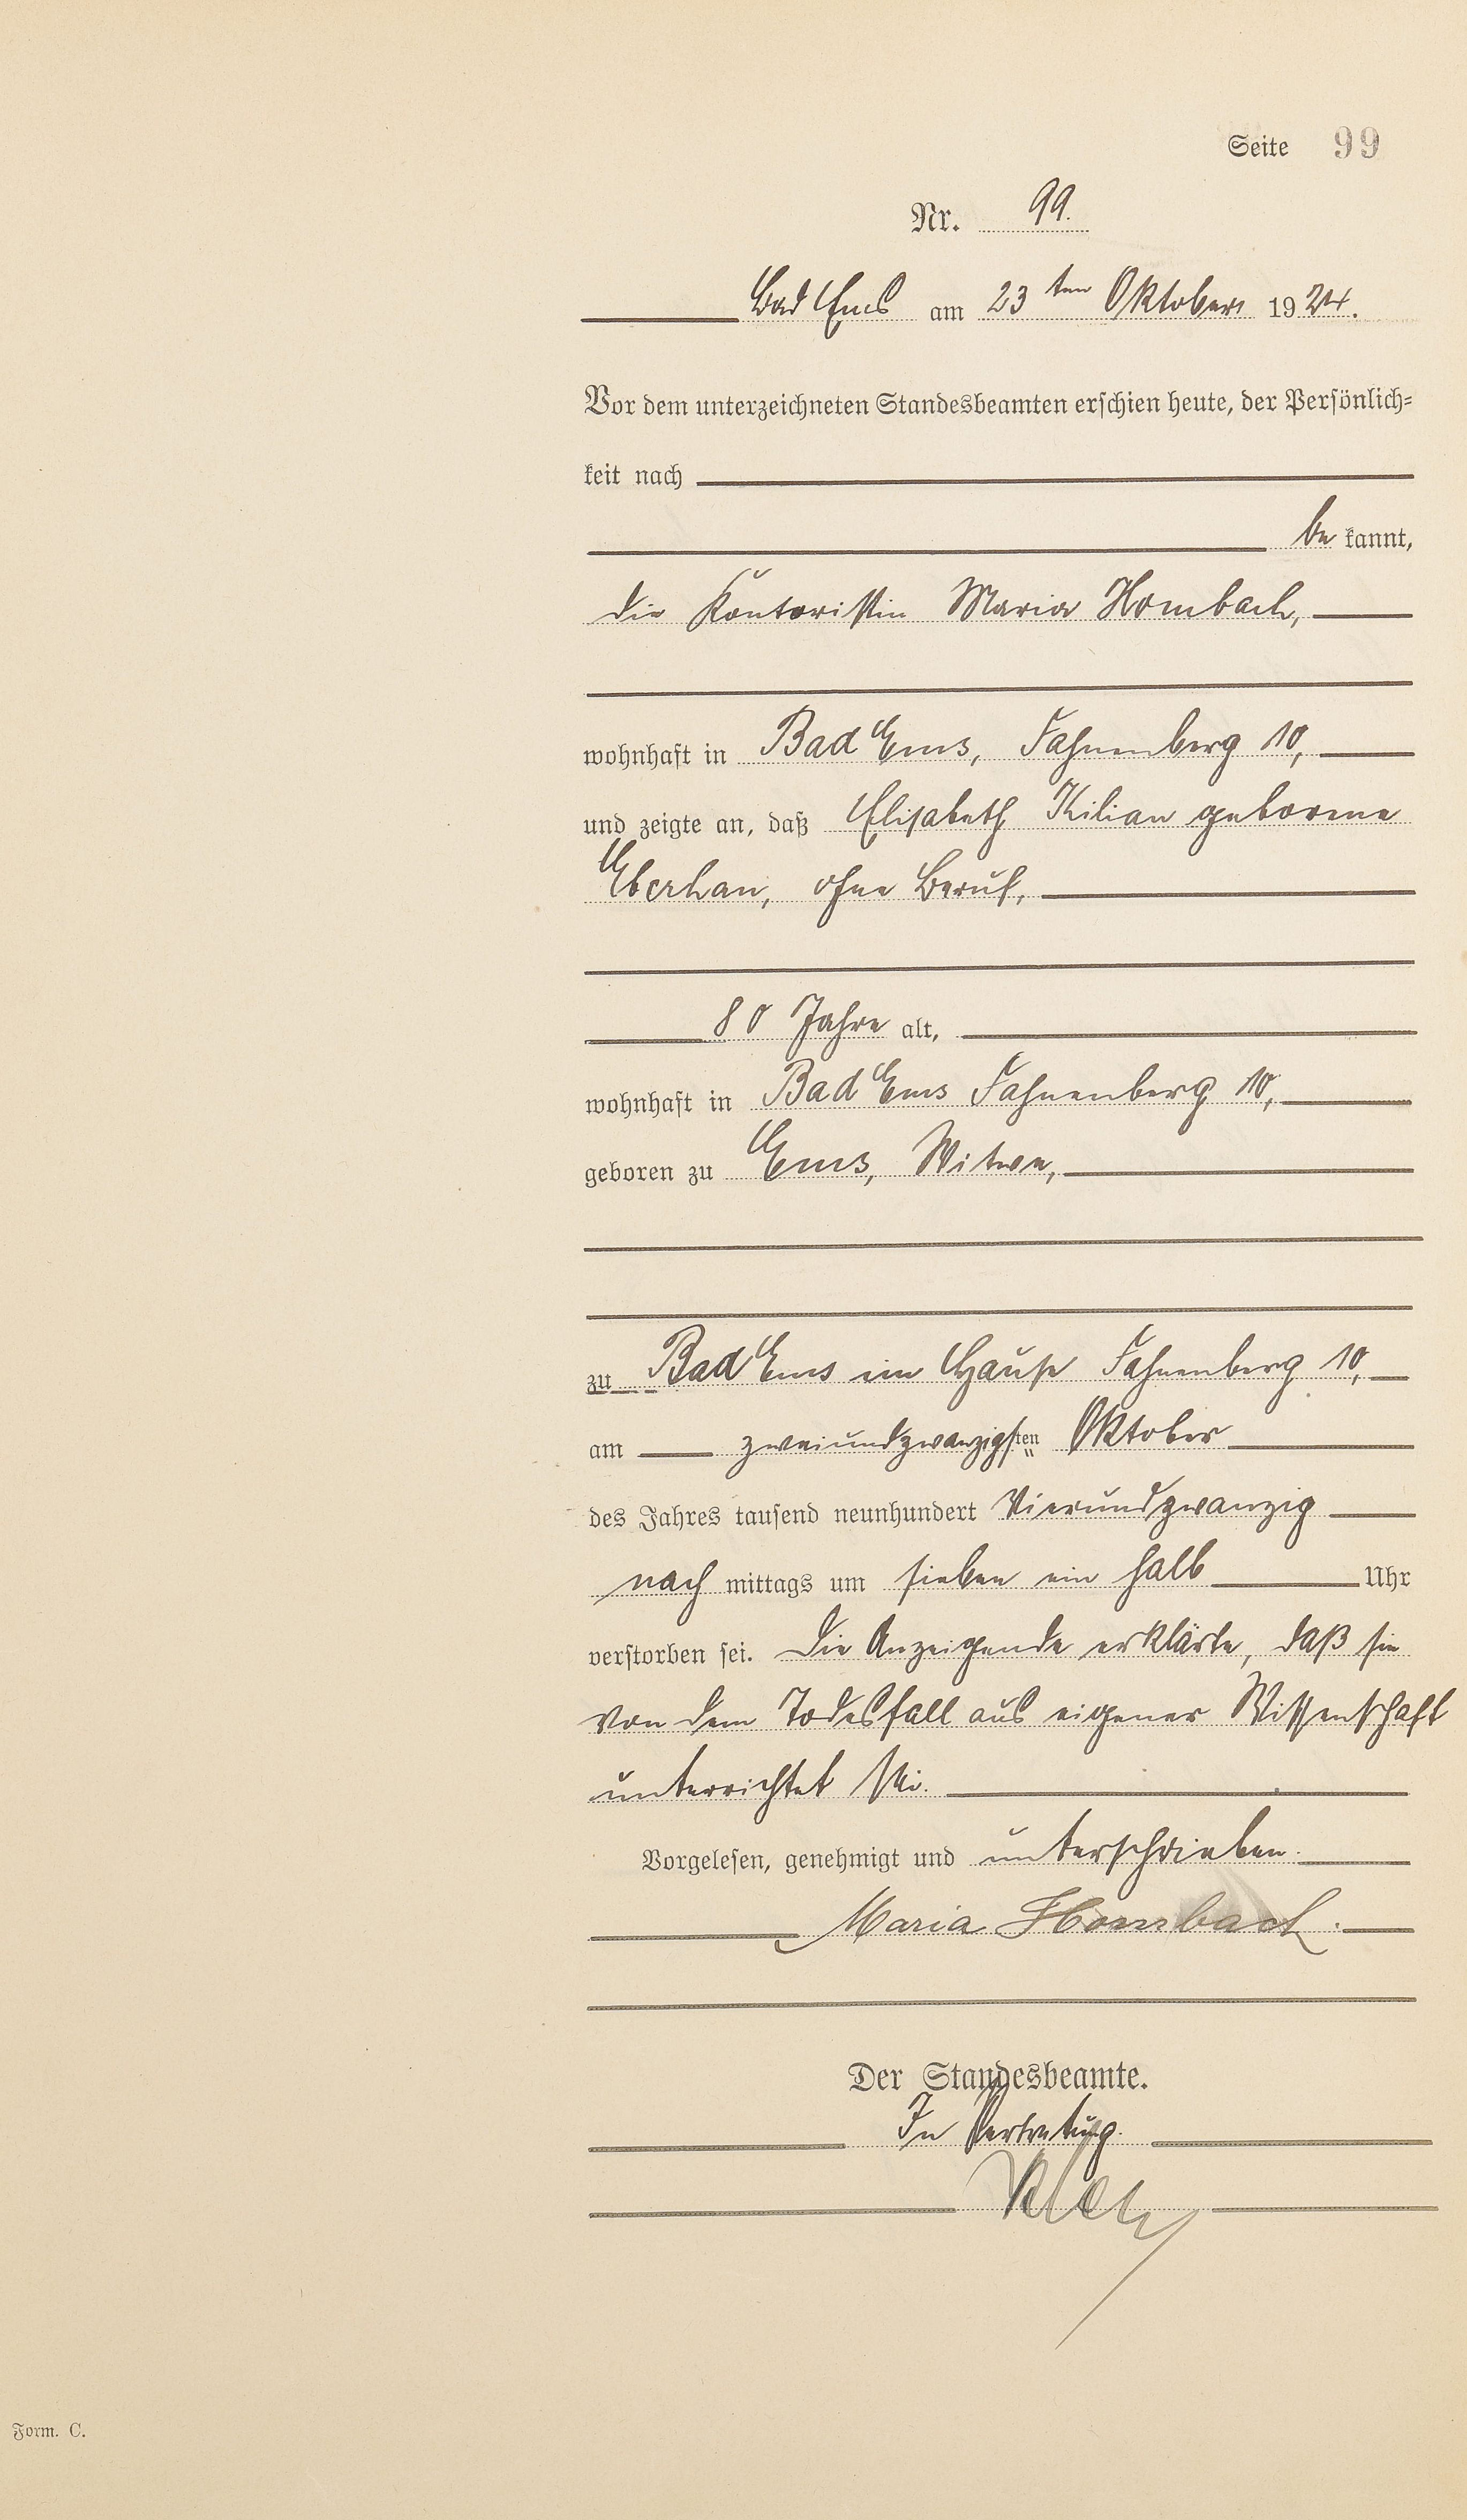 Seite 99
Nr. 99.
Bad Ems am 23ten Oktober 1924.
Vor dem unterzeichneten Standesbeamten erschien heute, der Persönlich-
keit nach
be kannt,
die Kontoristin Maria Hombach,
wohnhaft in Bad Ems, Fahnenberg 10,
und zeigte an, daß Elisabeth Kilian geborene
Eberhan, ohne Beruf,
80 Jahre alt,
wohnhaft in Bad Ems Fahnenberg 10,
geboren zu Ems, Witwe,
zu Bad Ems im Hause Fahnenberg 10,
am zweiundzwanzigsten Oktober
des Jahres tausend neunhundert Vierundzwanzig
nach mittags um sieben ein halb Uhr
verstorben sei. Die Anzeigende erklärte, daß sie
von dem Todesfall aus eigener Wissenschaft
unterrichtet sei.
Vorgelesen, genehmigt und unterschrieben.
Maria Hombach.
Der Standesbeamte.
In Vertretung.
Form. C.